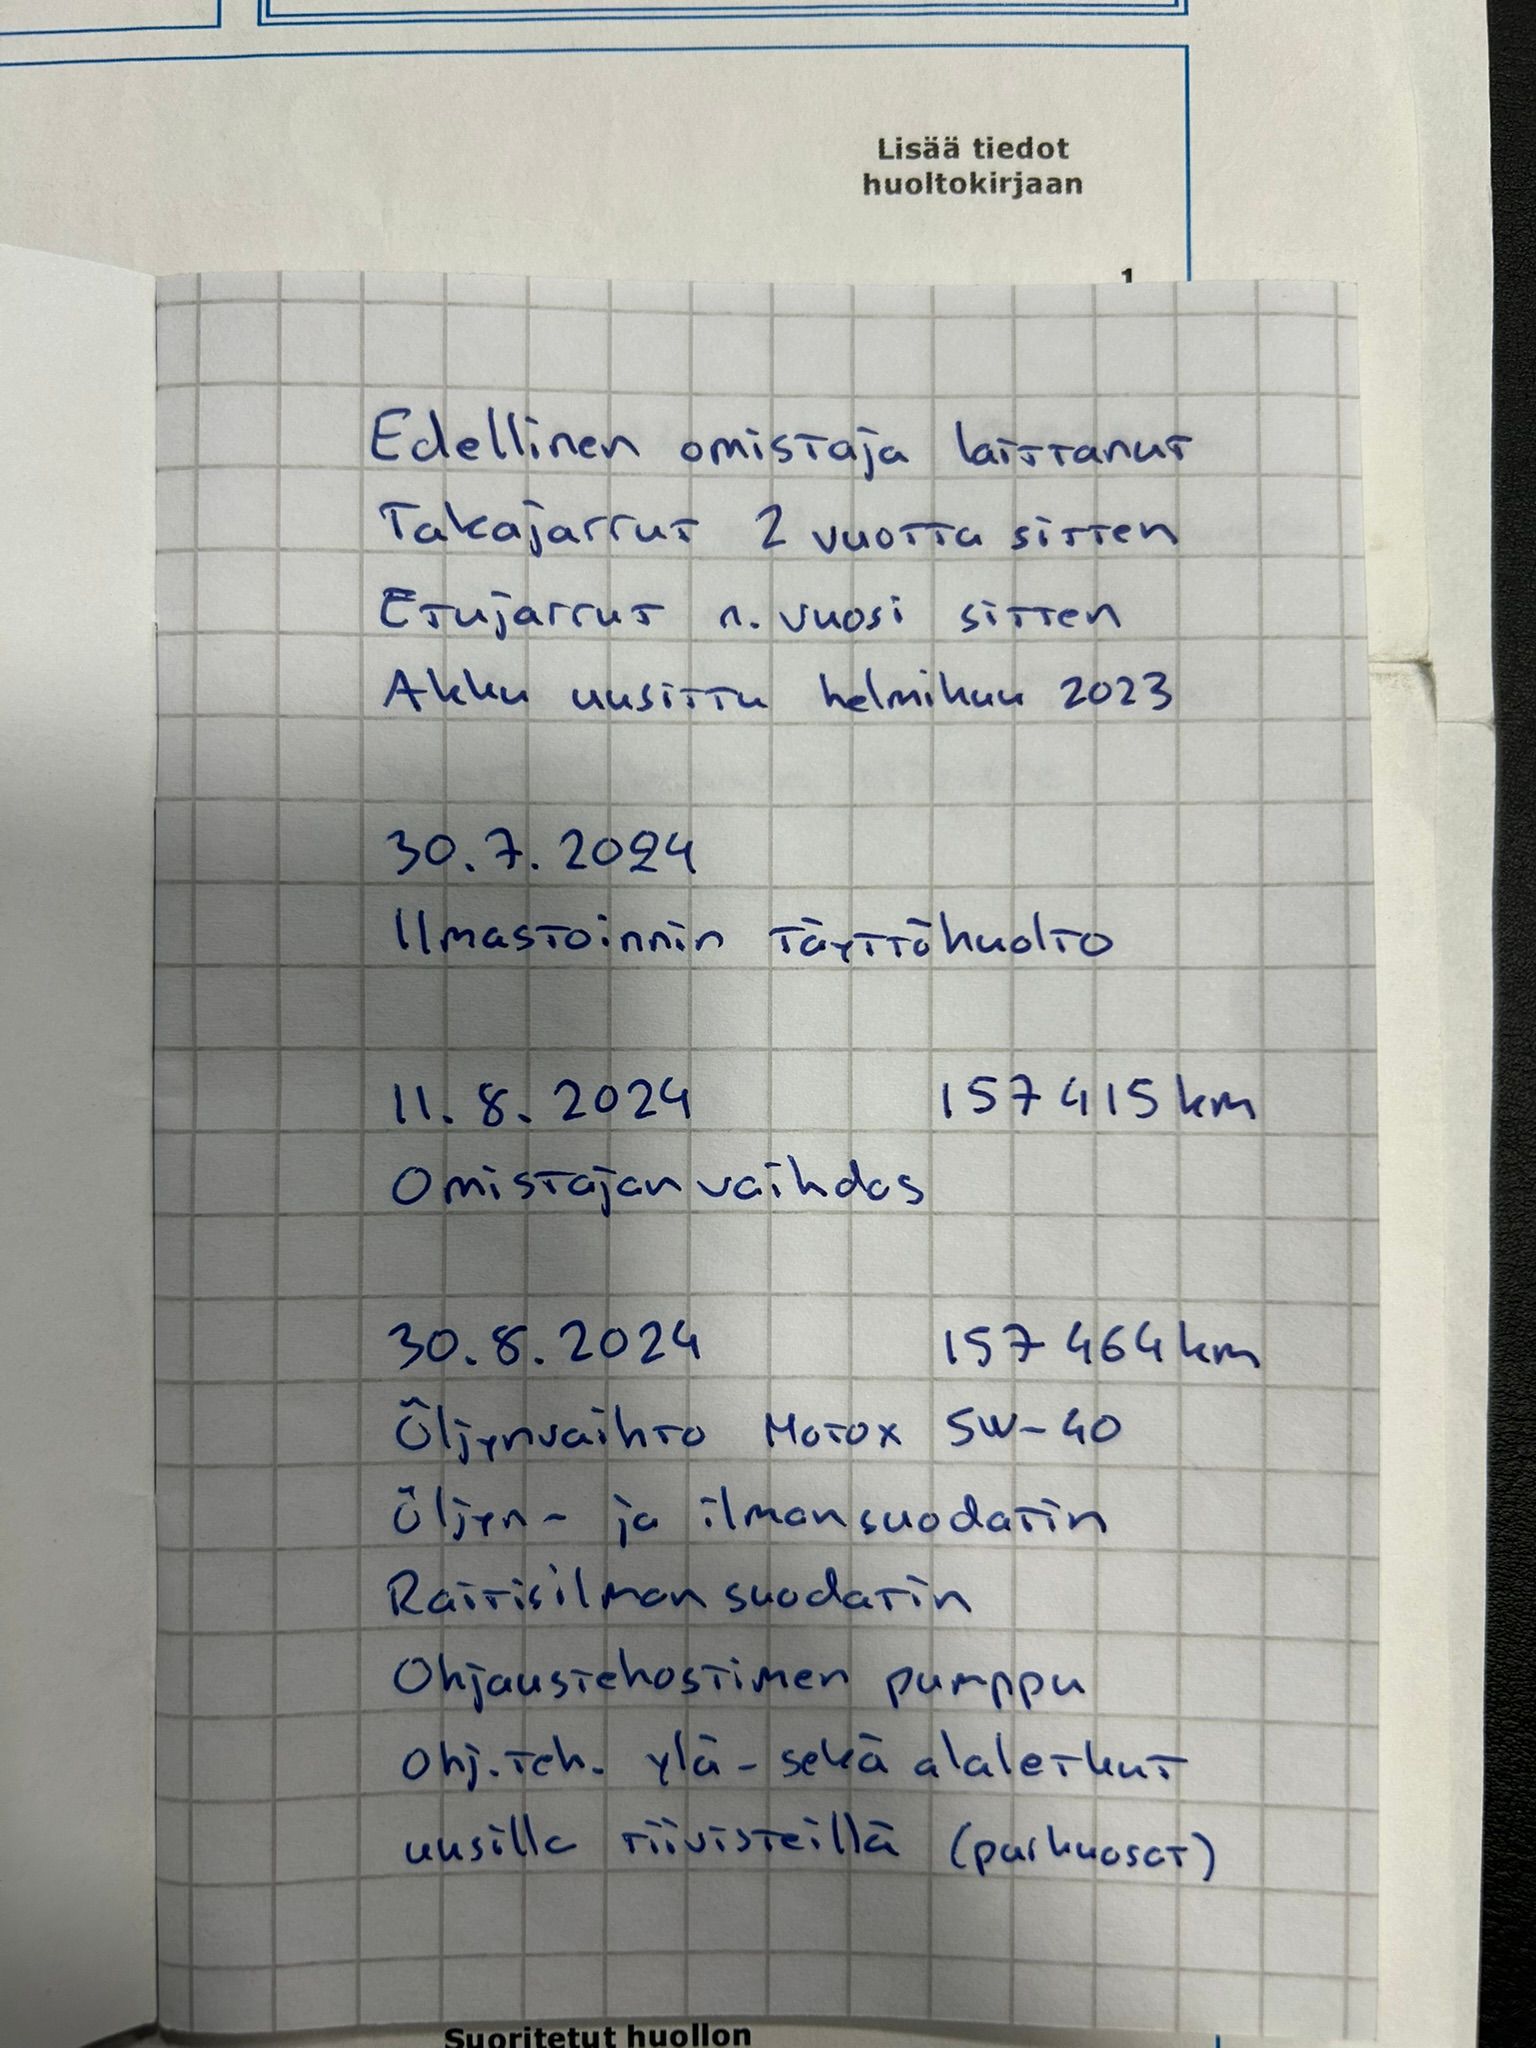 Lisää tiedot
huoltokirjaan
1
Edellinen omistaja laittanut
Takajarrut 2 vuotta sitten
Etujarrut n. vuosi sitten
Akku uusittu helmikuu 2023
30.7.2024
Ilmastoinnin täyttöhuolto
11.8.2024 157 415 km
Omistajanvaihdos
30.8.2024 157 464 km
Öljynvaihto Motox 5W-40
Öljyn- ja ilmansuodatin
Raitisilmansuodatin
Ohjaustehostimen pumppu
Ohj.teh. ylä- sekä alaletkut
uusilla tiivisteillä (purkuosat)
Suoritetut huollon